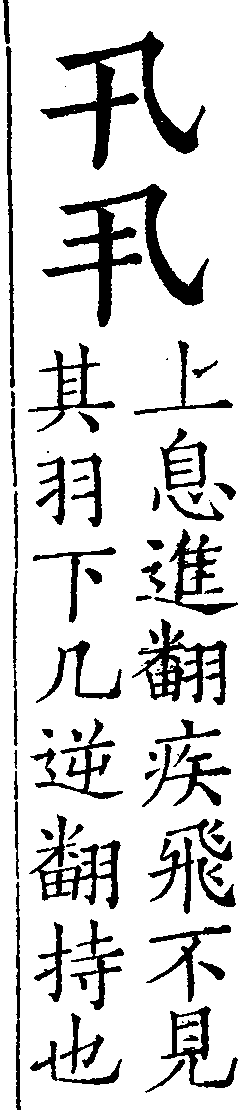 卂丮
上息進翻疾飛不見
其羽下几逆翻持也